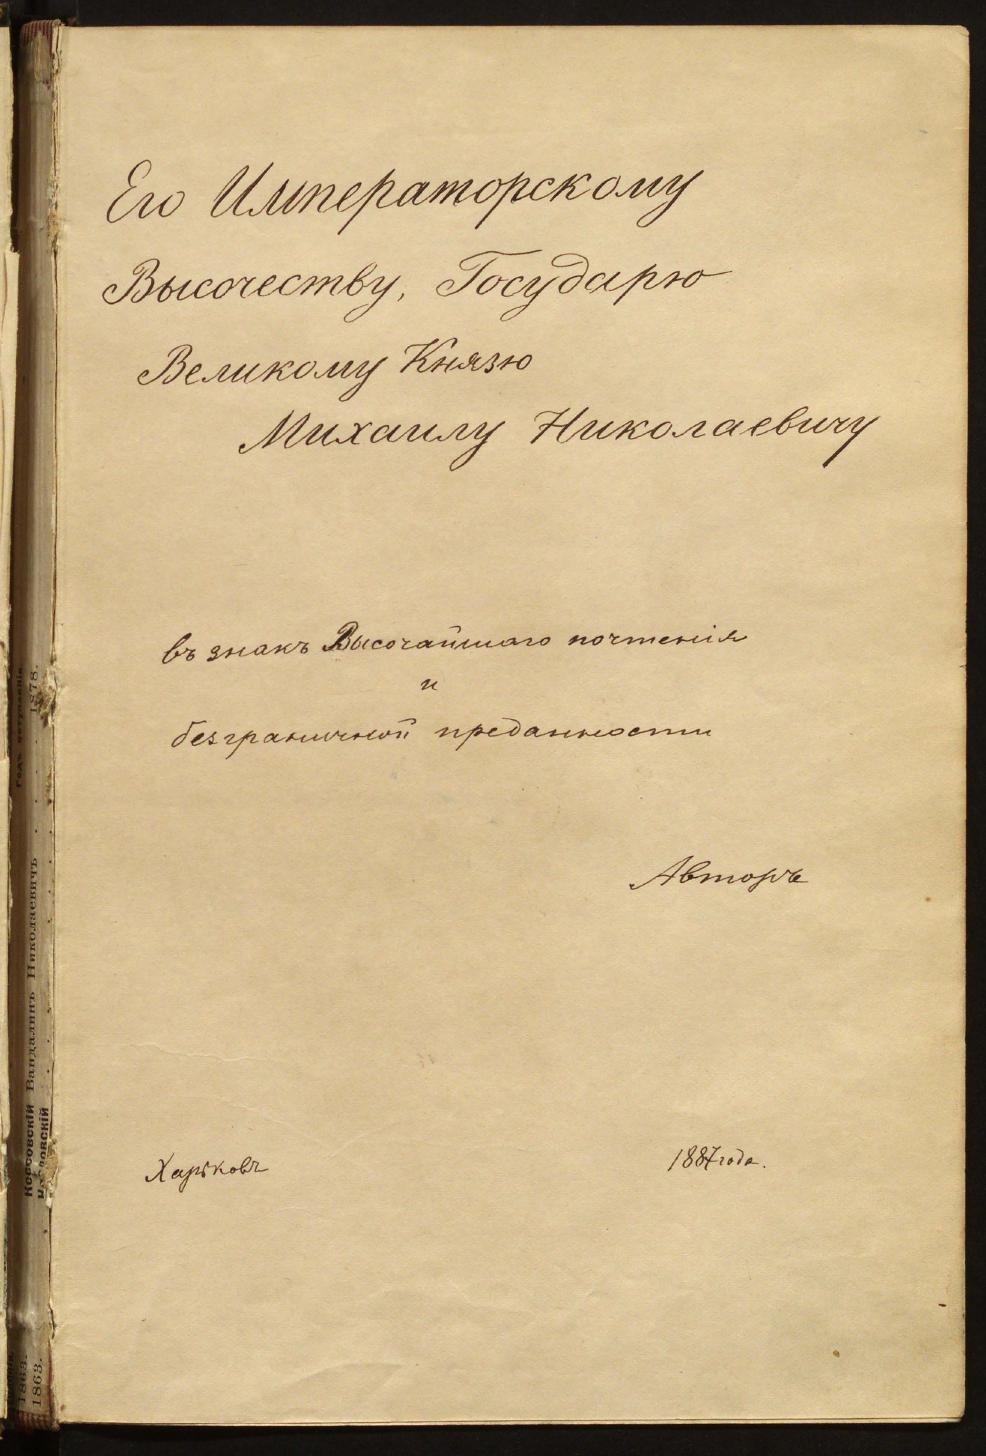 Его Императорскому
Высочеству, Государю
Великому Князю
Михаилу Николаевичу
въ знакъ Высочайшаго почтенія
и
безграничной преданности
Авторъ
Харьковъ
1887 года.
1878.
Вандалинъ Николаевичъ
1863.
1863.